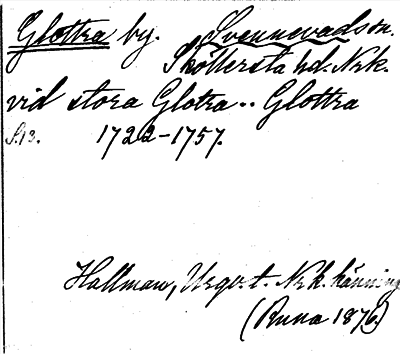 Glottra by. Svennevads sn.
Sköllersta hd. Nrk.
vid stora Glotra.. Glottra
S. 13. 1722-1757.
Hallman, Urgr. t. Nrk. känning
(Runa 1876.)